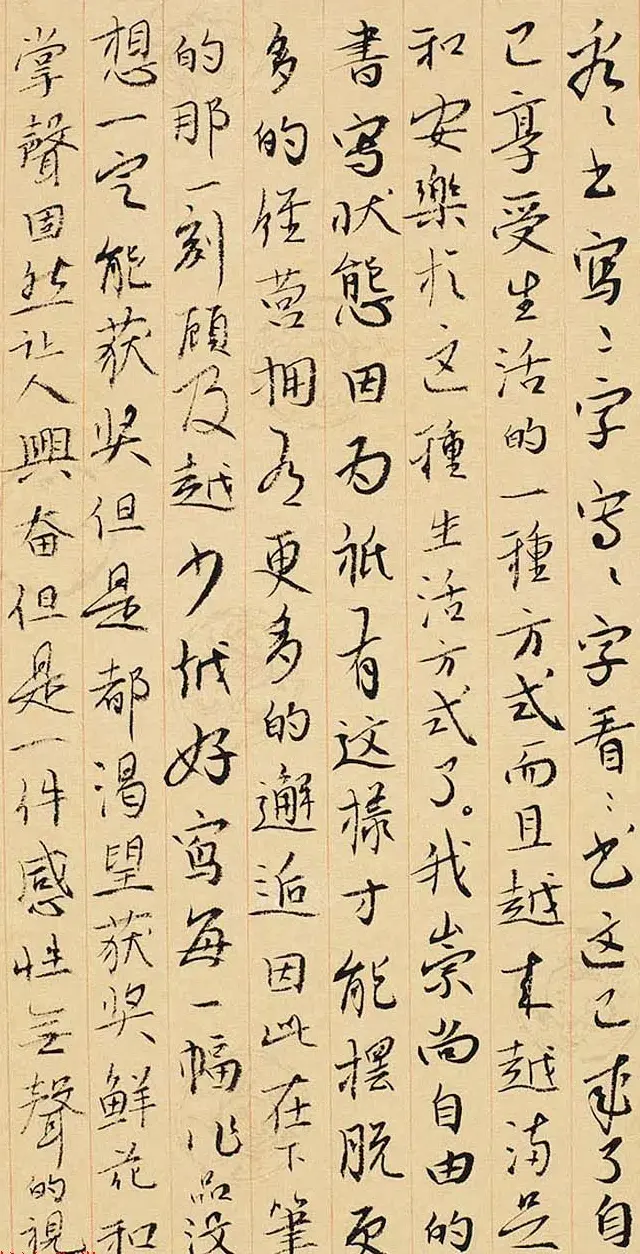 看〻书寫〻字寫〻字看〻书这已成了自
己享受生活的一種方式而且越来越满足
和安樂於这種生活方式了。我崇尚自由的
書寫状態因为衹有这樣才能摆脱更
多的经营拥有更多的邂逅因此在下筆
的那一刻顾及越少越好寫每一幅作品没
想一定能获奖但是都渴望获奖鲜花和
掌聲固然让人興奋但是一件感性无聲的視